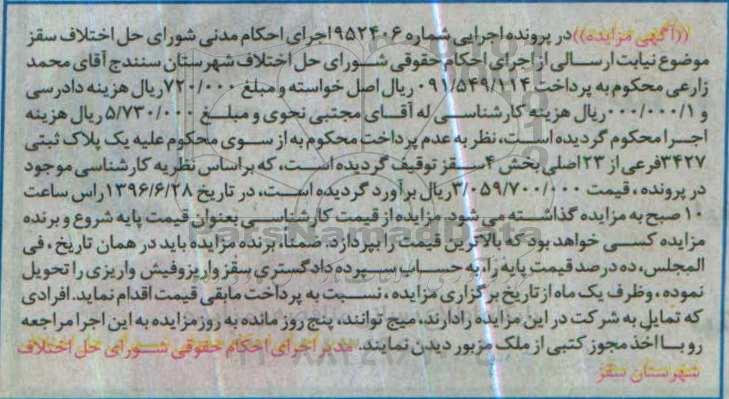 ((آگهی مزایده)) در پرونده اجرایی شماره ۹۵۲۴۰۶ اجرای احکام مدنی شورای حل اختلاف سقز
موضوع نیابت ارسالی از اجرای احکام حقوقی شورای حل اختلاف شهرستان سنندج آقای محمد
زارعی محکوم به پرداخت ۰۹۱/۵۴۹/۱۱۴ ریال اصل خواسته و مبلغ ۷۲۰/۰۰۰ ریال هزینه دادرسی
و ۰۰۰/۰۰۰/۱ ریال هزینه کارشناسی له آقای مجتبی نحوی و مبلغ ۵/۷۳۰/۰۰۰ ریال هزینه
اجرا محکوم گردیده است، نظر به عدم پرداخت محکوم به از سوی محکوم علیه یک پلاک ثبتی
۳۴۲۷ فرعی از ۲۳ اصلی بخش ۴ سقز توقیف گردیده است، که براساس نظریه کارشناسی موجود
در پرونده، قیمت ۳/۰۵۹/۷۰۰/۰۰۰ ریال برآورد گردیده است، در تاریخ ۱۳۹۶/۶/۲۸ راس ساعت
۱۰ صبح به مزایده گذاشته می شود. مزایده از قیمت کارشناسی بعنوان قیمت پایه شروع و برنده
مزایده کسی خواهد بود که بالاترین قیمت را بپردازد. ضمناً، برنده مزایده باید در همان تاریخ، فی
المجلس، ده درصد قیمت پایه را، به حساب سپرده دادگستری سقز واریز و فیش واریزی را تحویل
نموده، وظرف یک ماه از تاریخ برگزاری مزایده، نسبت به پرداخت مابقی قیمت اقدام نماید. افرادی
که تمایل به شرکت در این مزایده را دارند، میج توانند، پنج روز مانده به روز مزایده به این اجرا مراجعه
رو با اخذ مجوز کتبی از ملک مزبور دیدن نمایند. مدیر اجرای احکام حقوقی شورای حل اختلاف
شهرستان سقز
ParsNamadData